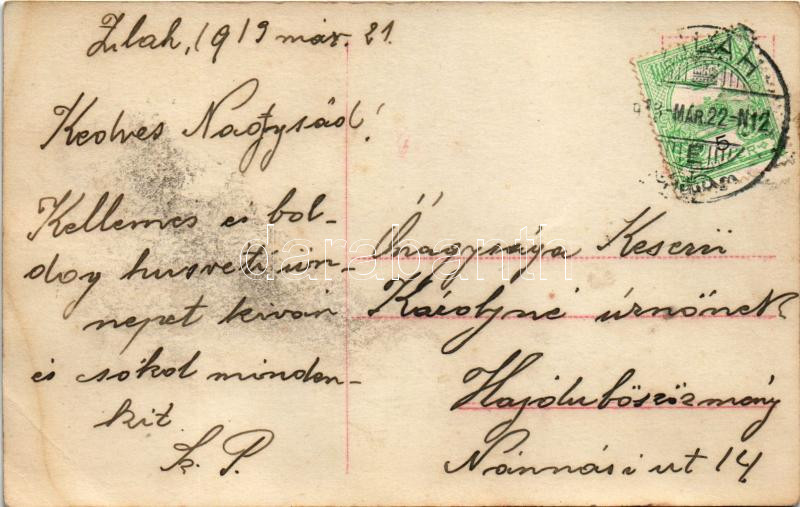 Zilah, 1913 már. 21.
Kedves Nagysád!
Kellemes és bol-
dog husveti ün-
nepet kiván
és csókol minden-
kit
K. P.
ZILAH
913 MÁR. 22-N12
5
E
Őnagysága Keserü
Károlyné úrnőnek
Hajdubőszörmény
Nánnási ut 14
darabanth